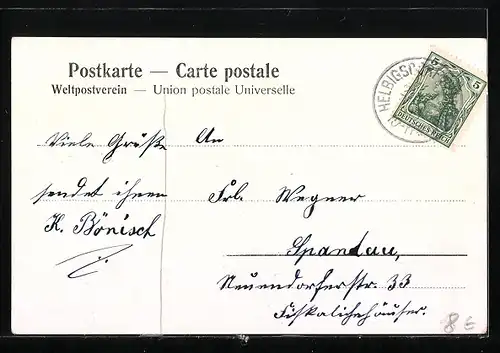 Postkarte — Carte postale
Weltpostverein — Union postale Universelle
Viele Grüße
sendet ihnen
K. Bönisch
An
Frl. Wegner
Spandau,
Neuendorferstr. 33
Fiskalichehäuser.
5 5
DEUTSCHES REICH
8 €